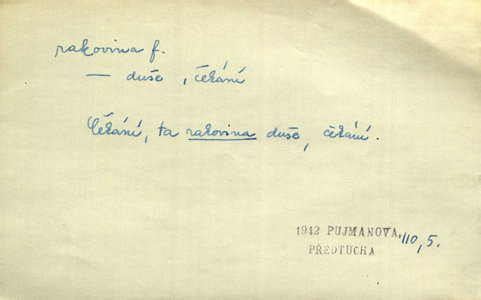 rakovina f.
— duše, čekání
Čekání, ta rakovina duše, čekání.
1942 PUJMANOVA, 110, 5.
PŘEDTUCHA